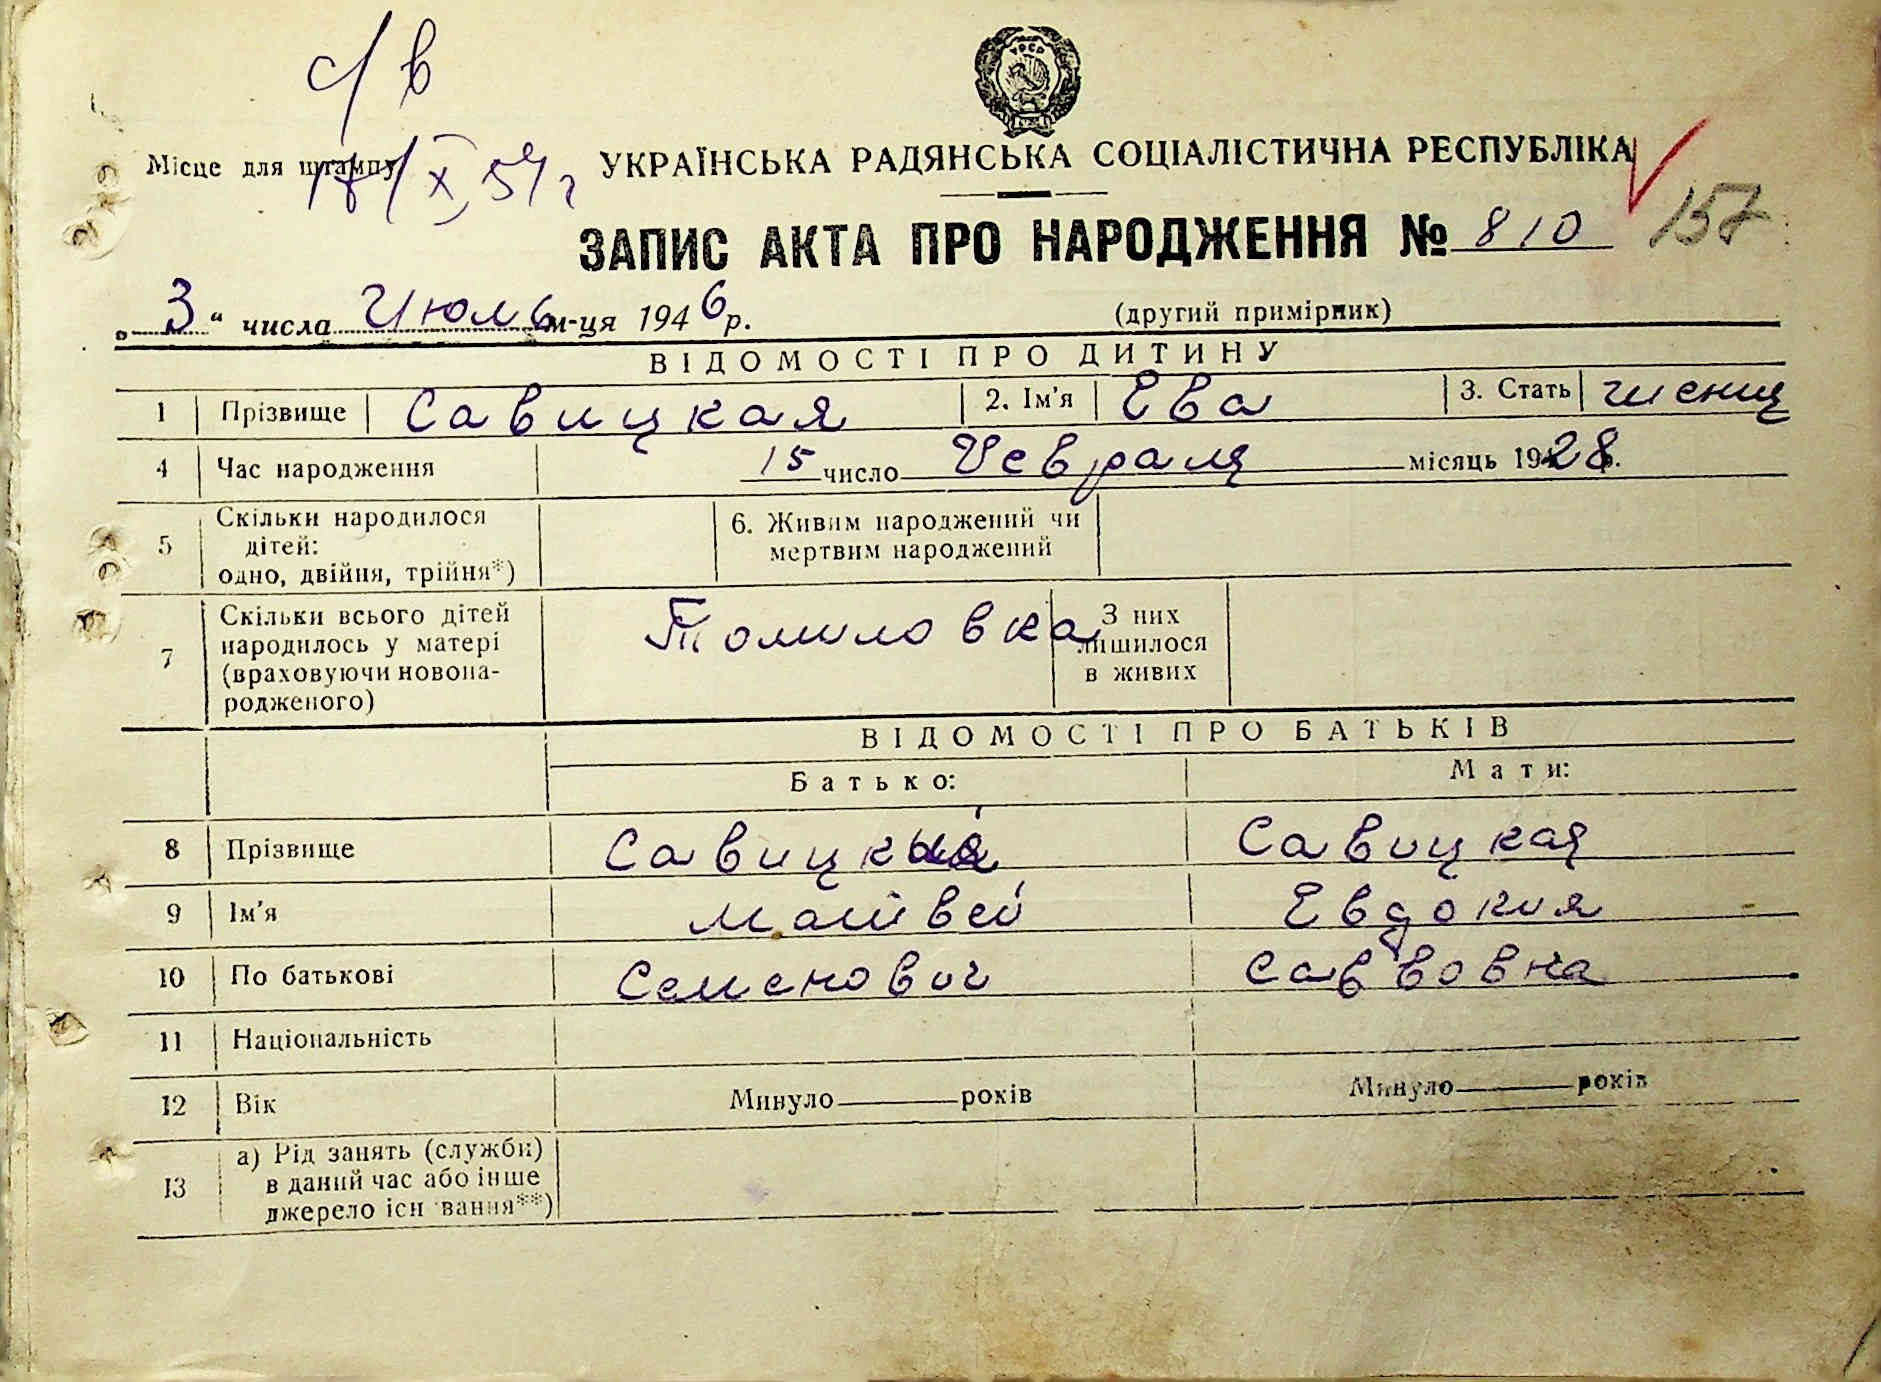 с/в
Місце для штампу
17/X 51 г
УРСР
УКРАЇНСЬКА РАДЯНСЬКА СОЦІАЛІСТИЧНА РЕСПУБЛІКА
ЗАПИС АКТА ПРО НАРОДЖЕННЯ № 810 157
„ 3 “ числа Июль м-ця 1946 р. (другий примірник)
ВІДОМОСТІ ПРО ДИТИНУ
1 Прізвище Савицкая 2. Ім'я Ева 3. Стать женщ
4 Час народження 15 число Февраля місяць 1928 р.
5 Скільки народилося дітей: одно, двійня, трійня*) 6. Живим народжений чи мертвим народжений
7 Скільки всього дітей народилось у матері (враховуючи новонародженого) Томиловка З них лишилося в живих
ВІДОМОСТІ ПРО БАТЬКІВ
Батько: Мати:
8 Прізвище Савицкий Савицкая
9 Ім'я Матвей Евдокия
10 По батькові Семенович Саввовна
11 Національність
12 Вік Минуло років Минуло років
13 а) Рід занять (служби) в даний час або інше джерело існ вання**)